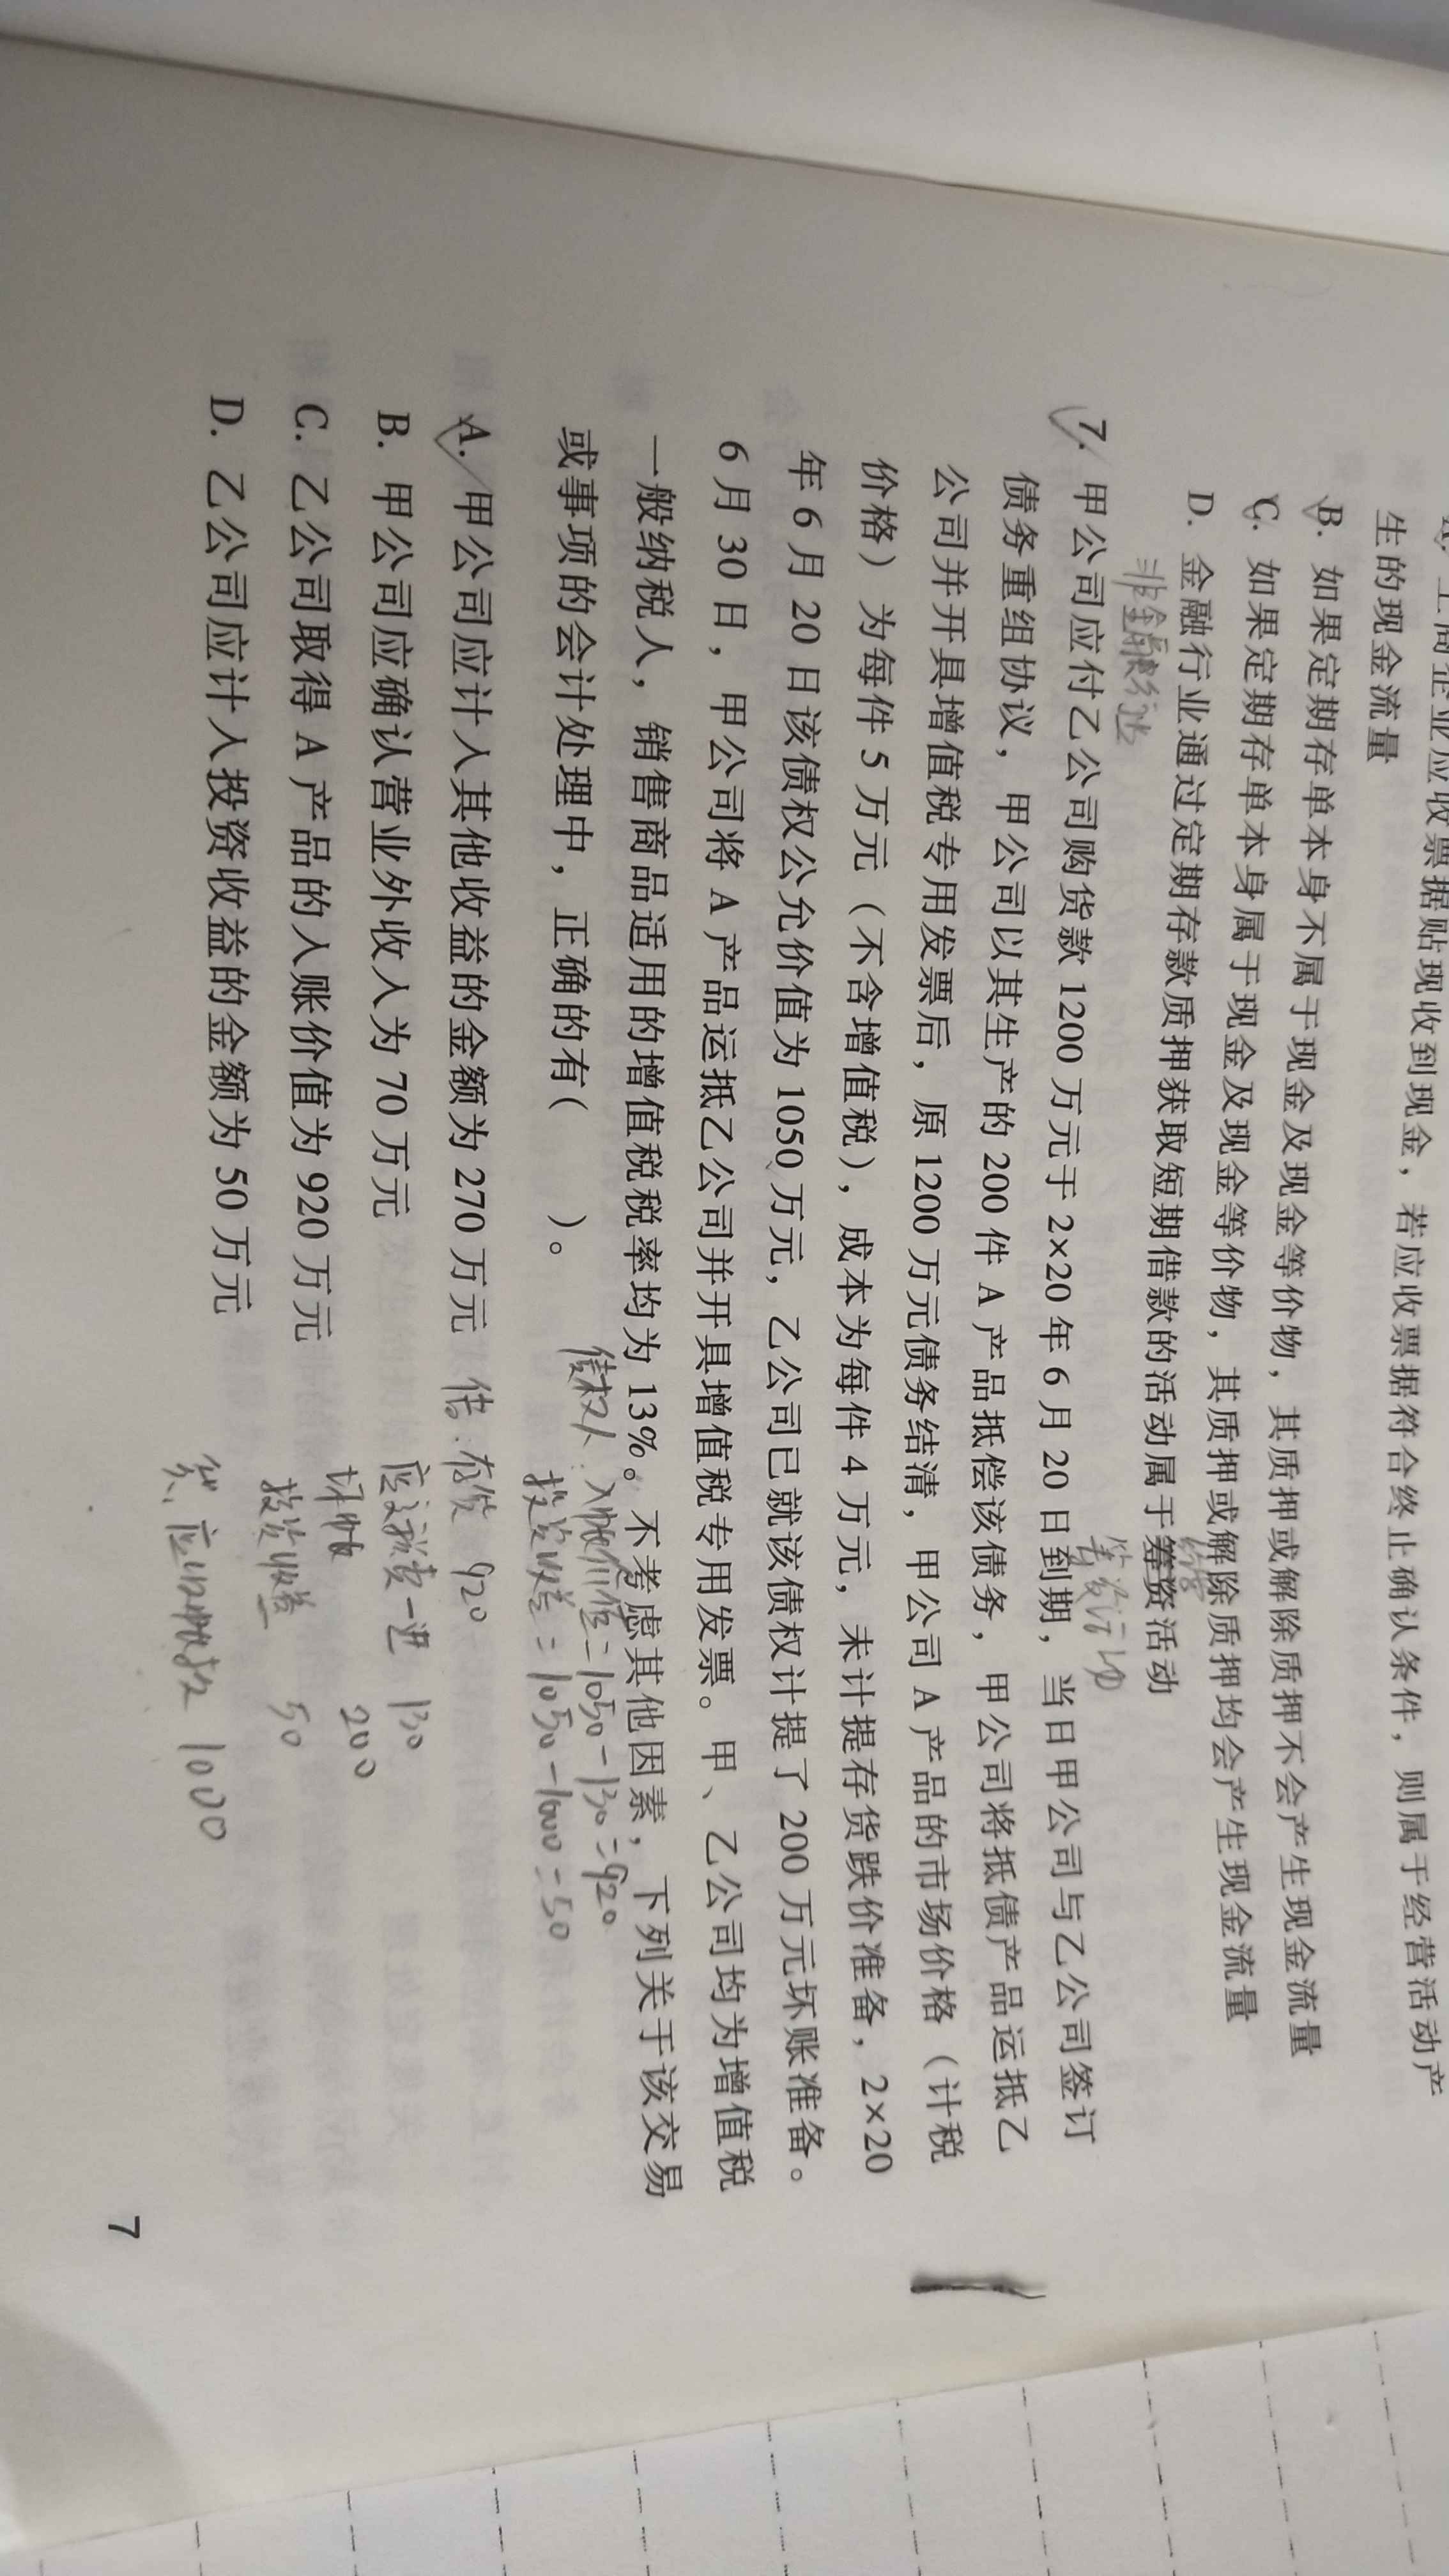 工商企业应收票据贴现收到现金，若应收票据符合终止确认条件，则属于经营活动产
生的现金流量
B. 如果定期存单本身不属于现金及现金等价物，其质押或解除质押不会产生现金流量
C. 如果定期存单本身属于现金及现金等价物，其质押或解除质押均会产生现金流量
D. 金融行业通过定期存款质押获取短期借款的活动属于筹资活动
非金融行业
7. 甲公司应付乙公司购货款 1200 万元于 2×20 年 6 月 20 日到期，当日甲公司与乙公司签订
债务重组协议，甲公司以其生产的 200 件 A 产品抵偿该债务，甲公司将抵债产品运抵乙
公司并开具增值税专用发票后，原 1200 万元债务结清，甲公司 A 产品的市场价格（计税
价格）为每件 5 万元（不含增值税），成本为每件 4 万元，未计提存货跌价准备，2×20
年 6 月 20 日该债权公允价值为 1050 万元，乙公司已就该债权计提了 200 万元坏账准备。
6 月 30 日，甲公司将 A 产品运抵乙公司并开具增值税专用发票。甲、乙公司均为增值税
一般纳税人，销售商品适用的增值税税率均为 13%。不考虑其他因素，下列关于该交易
或事项的会计处理中，正确的有( )。
债权人：入账价值=1050-130=920
投资收益=1050-1000=50
A. 甲公司应计入其他收益的金额为 270 万元
借：存货 920
B. 甲公司应确认营业外收入为 70 万元
应交税费一进 130
坏账 200
C. 乙公司取得 A 产品的入账价值为 920 万元
投资收益 50
D. 乙公司应计入投资收益的金额为 50 万元
贷：应收账款 1000
7